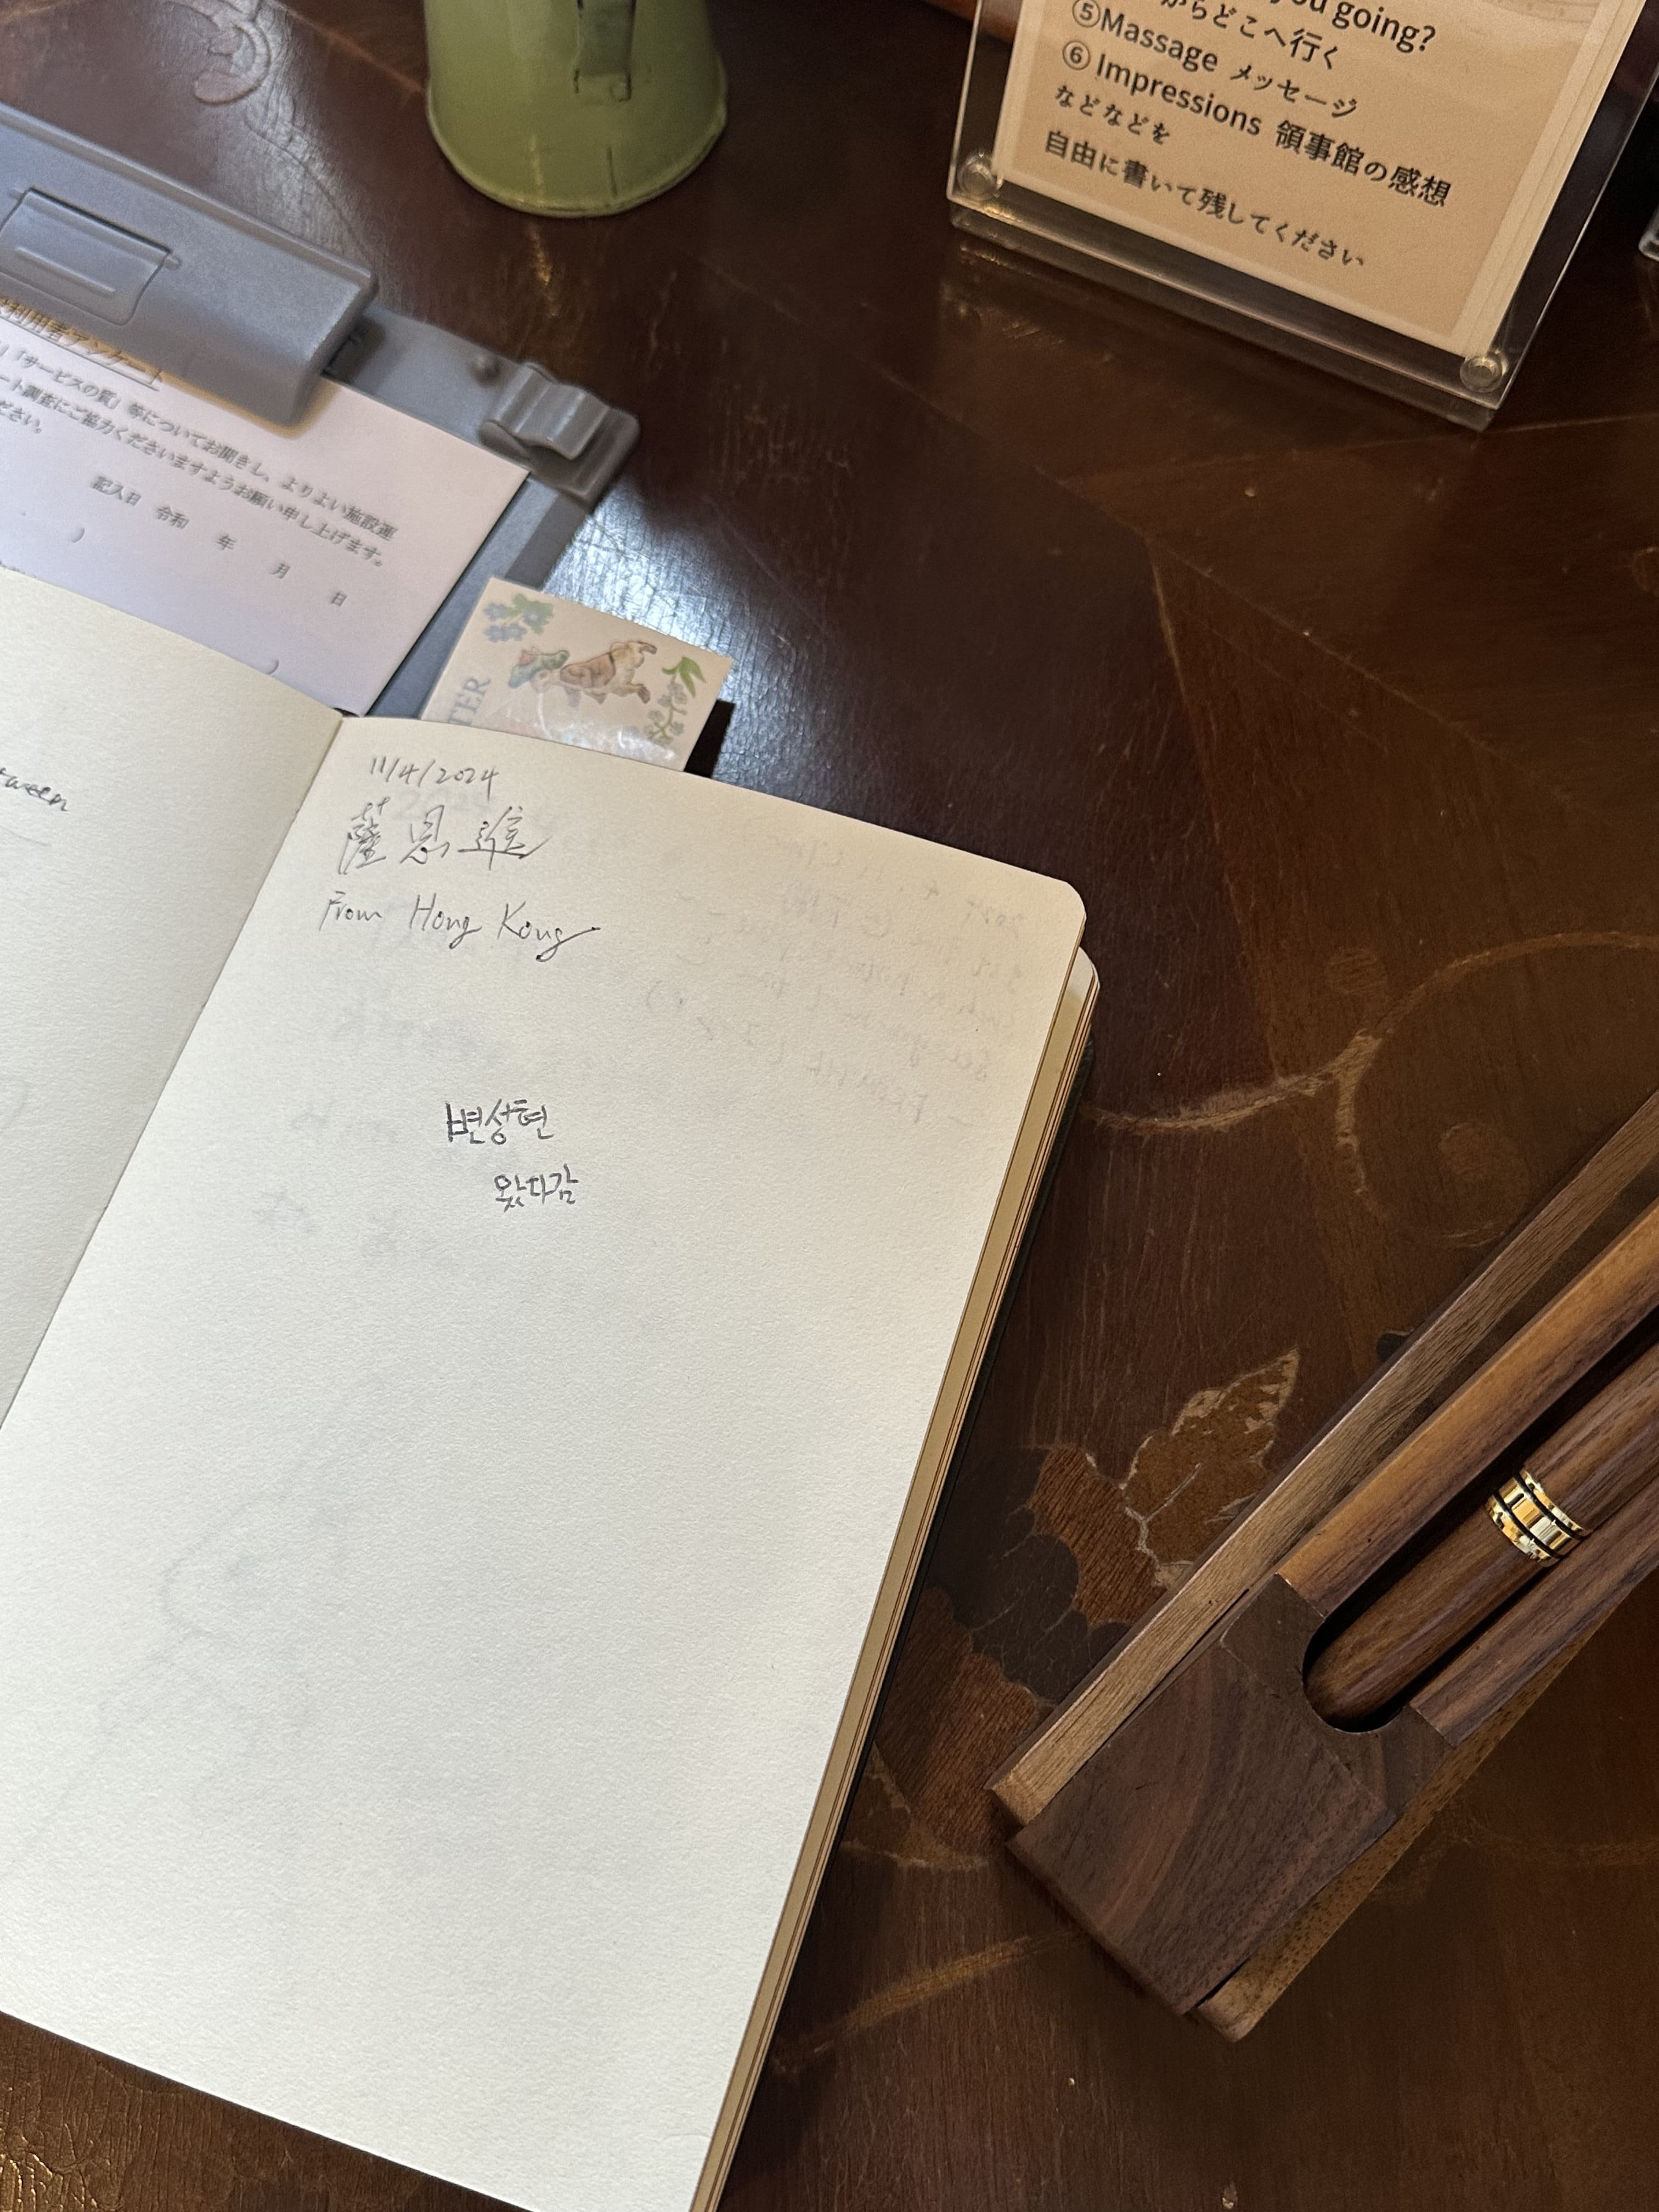 you going?
からどこへ行く
⑤Massage メッセージ
⑥ Impressions 領事館の感想
などなどを
自由に書いて残してください
利用者アンケート
「サービスの質」等についてお聞きし、よりよい施設運
ート調査にご協力くださいますようお願い申し上げます。
ださい。
記入日 令和 年 月 日
)
)
TER
tween
11/4/2024
薩恩進
From Hong Kong
변성현
왔다감